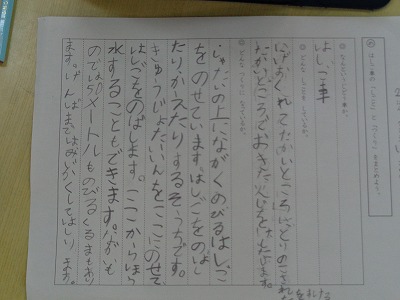 はしご車の「しごと」と「つくり」をまとめよう。
はしご車
にげおくれてたかいところにとりのこされ
たかいところでおきた火じを
しゃたいの上にながくのびるはしご
をのせています。はしごをのばし
たりかえたりするそうちです。
きゅうじょたいいんをここにのせて
はしごをのばします。ここからほう
水することもできます。
のでは50メートルものびるくるまもあり
ます。げんばまではみじかくしてはしります。